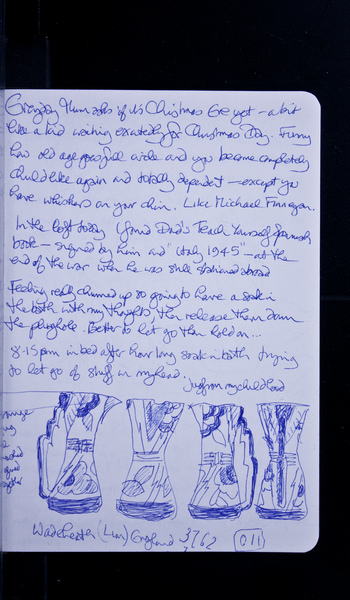 Everyday Mum asks if it's Christmas Eve yet – a bit
like a kid waiting excitedly for Christmas Day. Funny
how old age goes full circle and you become completely
childlike again and totally dependent – except you
have whiskers on your chin. Like Michael Finnegan.
In the loft today I found Dad's Teach Yourself Spanish
book – signed by him and "Italy 1945" – at the
end of the war when he was still stationed abroad
Feeling really churned up so going to have a soak in
the bath with my thoughts, then release them down
the plughole. Better to let go than hold on...
8.15pm in bed after hour long soak in bath trying
to let go of stuff in my head.
Jug from my childhood
England 3762
011